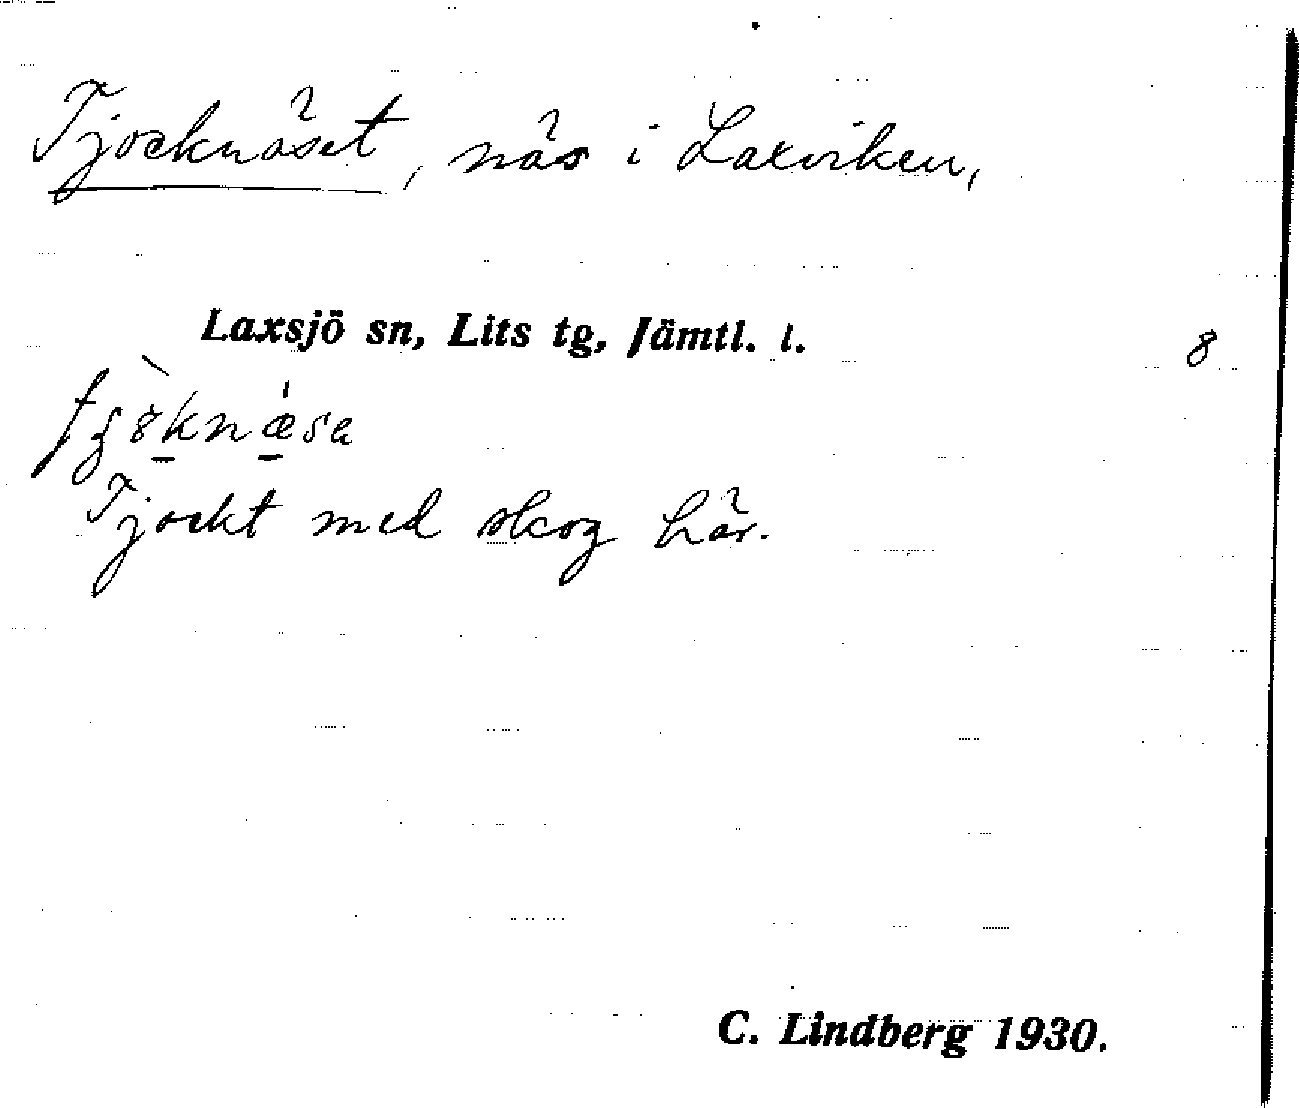 Tjocknäset, näs i Laxviken,
Laxsjö sn, Lits tg, Jämtl. l.
8
Tjockt med skog här.
C. Lindberg 1930.